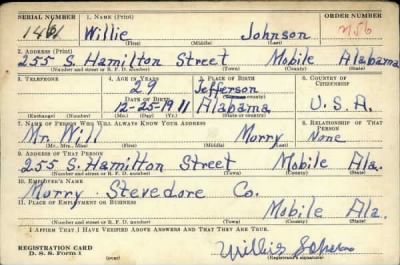 SERIAL NUMBER 1. NAME (Print) ORDER NUMBER
Willie Johnson
(First) (Middle) (Last)
2. ADDRESS (Print)
255 S. Hamilton Street Mobile Alabama
(Number and street or R. F. D. number) (Town) (County) (State)
3. TELEPHONE 4. AGE IN YEARS 5. PLACE OF BIRTH 6. COUNTRY OF CITIZENSHIP
29 Jefferson
DATE OF BIRTH (Town or county)
12-25-1911 Alabama U.S.A.
(Exchange) (Number) (Mo.) (Day) (Yr.) (State or country)
7. NAME OF PERSON WHO WILL ALWAYS KNOW YOUR ADDRESS 8. RELATIONSHIP OF THAT PERSON
Mr. Will Morry None
(Mr., Mrs., Miss) (First) (Middle) (Last)
9. ADDRESS OF THAT PERSON
255 S. Hamilton Street Mobile Ala.
(Number and street or R. F. D. number) (Town) (County) (State)
10. EMPLOYER'S NAME
Morry Stevedore Co.
11. PLACE OF EMPLOYMENT OR BUSINESS
Mobile Ala.
(Number and street or R. F. D. number) (Town) (County) (State)
I AFFIRM THAT I HAVE VERIFIED ABOVE ANSWERS AND THAT THEY ARE TRUE.
REGISTRATION CARD
D. S. S. Form 1
Willie
(Registrant's signature)